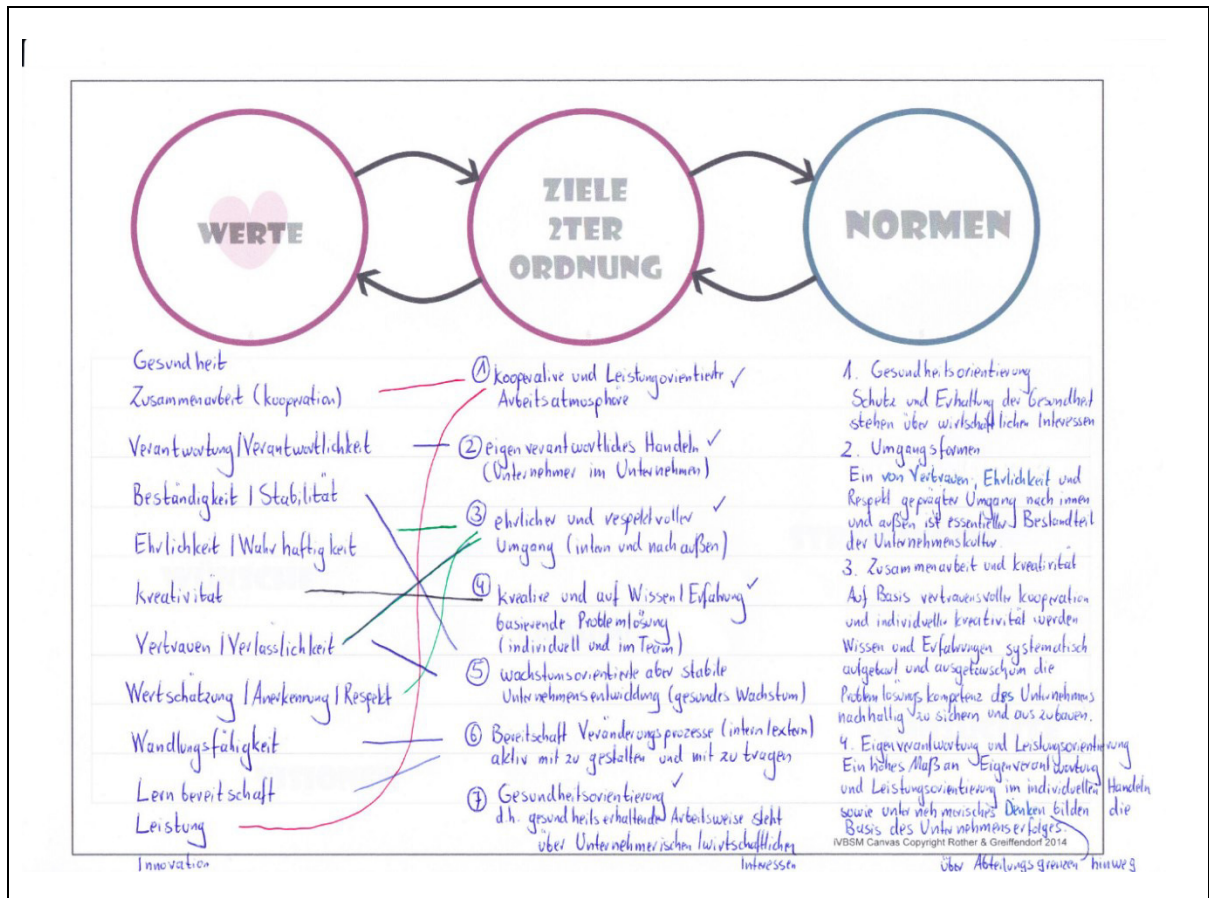 WERTE
ZIELE
2TER
ORDNUNG
NORMEN
Gesundheit
Zusammenarbeit (kooperation)
Verantwortung/Verantwortlichkeit
Beständigkeit / Stabilität
Ehrlichkeit / Wahrhaftigkeit
kreativität
Vertrauen / Verlässlichkeit
Wertschätzung / Anerkennung / Respekt
Wandlungsfähigkeit
Lernbereitschaft
Leistung
Innovation
① kooperative und Leistungsorientierte ✓
Arbeitsatmosphäre
② eigenverantwortliches Handeln ✓
(Unternehmer im Unternehmen)
③ ehrlicher und respektvoller ✓
Umgang (intern und nach außen)
④ kreative und auf Wissen / Erfahrung ✓
basierende Problemlösung
(individuell und im Team)
⑤ wachstumsorientierte aber stabile
Unternehmensentwicklung (gesundes Wachstum)
⑥ Bereitschaft Veränderungsprozesse (intern/extern)
aktiv mit zu gestalten und mit zu tragen
⑦ Gesundheitsorientierung ✓
d.h. gesundheitserhaltende Arbeitsweise steht
über Unternehmerischen / wirtschaftlichen
Interessen
1. Gesundheitsorientierung
Schutz und Erhaltung der Gesundheit
stehen über wirtschaftlichen Interessen
2. Umgangsformen
Ein von Vertrauen, Ehrlichkeit und
Respekt geprägter Umgang nach innen
und außen ist essentieller Bestandteil
der Unternehmenskultur.
3. Zusammenarbeit und kreativität
Auf Basis vertrauensvoller kooperation
und individueller kreativität werden
Wissen und Erfahrungen systematisch
aufgebaut und ausgetauscht um die
Problemlösungskompetenz des Unternehmens
nachhaltig zu sichern und auszubauen.
4. Eigenverantwortung und Leistungsorientierung
Ein hohes Maß an Eigenverantwortung
und Leistungsorientierung im individuellen Handeln
sowie unternehmerisches Denken bilden die
Basis des Unternehmenserfolges.
iVBSM Canvas Copyright Rother & Greiffendorf 2014
über Abteilungsgrenzen hinweg